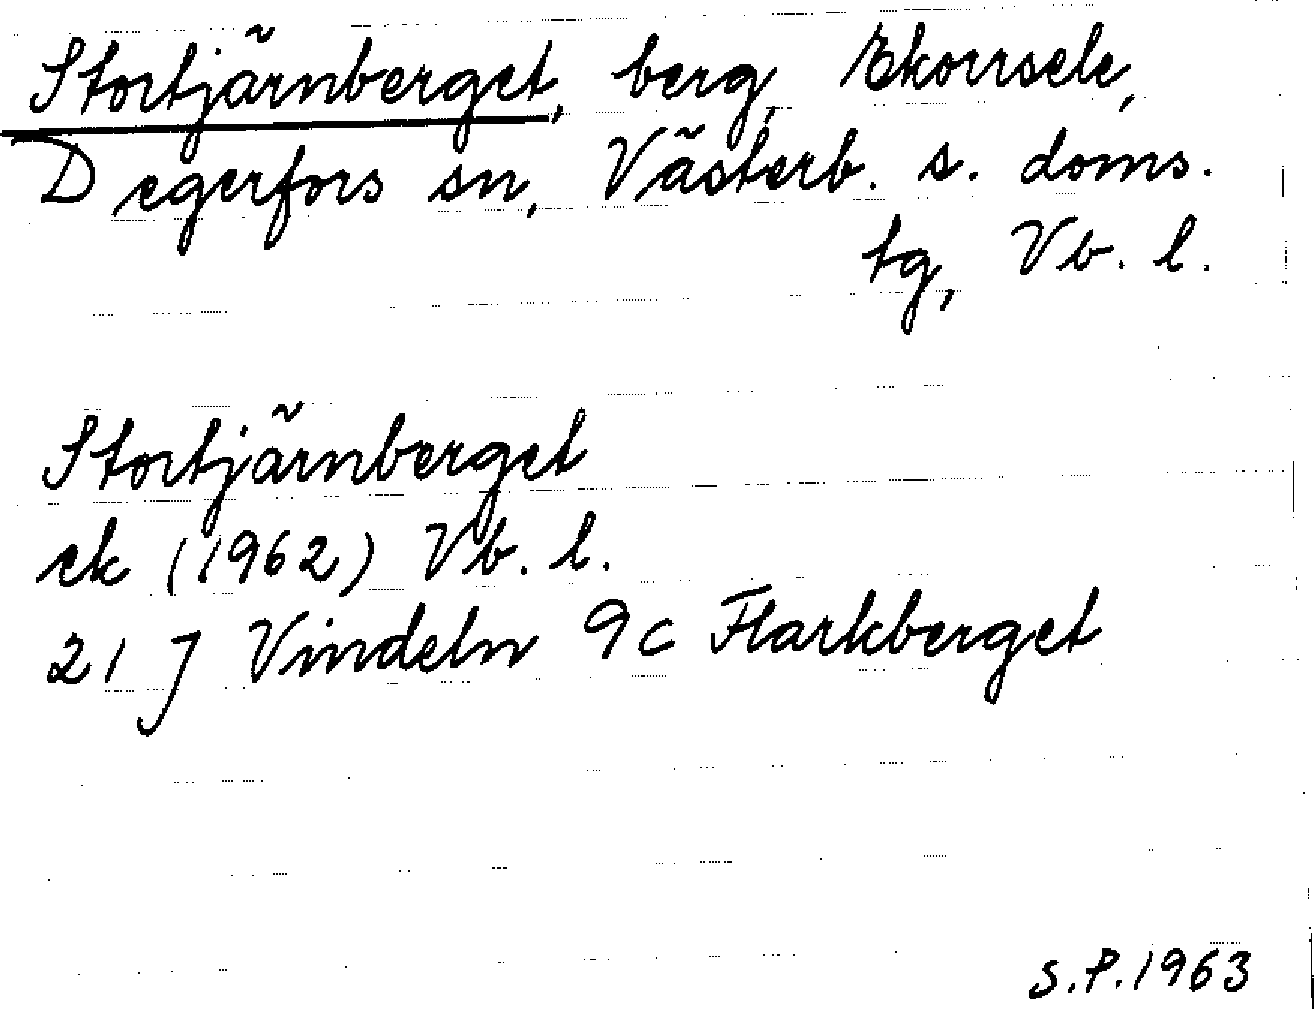 Stortjärnberget, berg, Ekorrsele,
Degerfors sn, Västerb. s. doms.
tg, Vb. l.
Stortjärnberget
ek (1962) Vb. l.
21 J Vindeln 9c Flarkberget
S.P. 1963